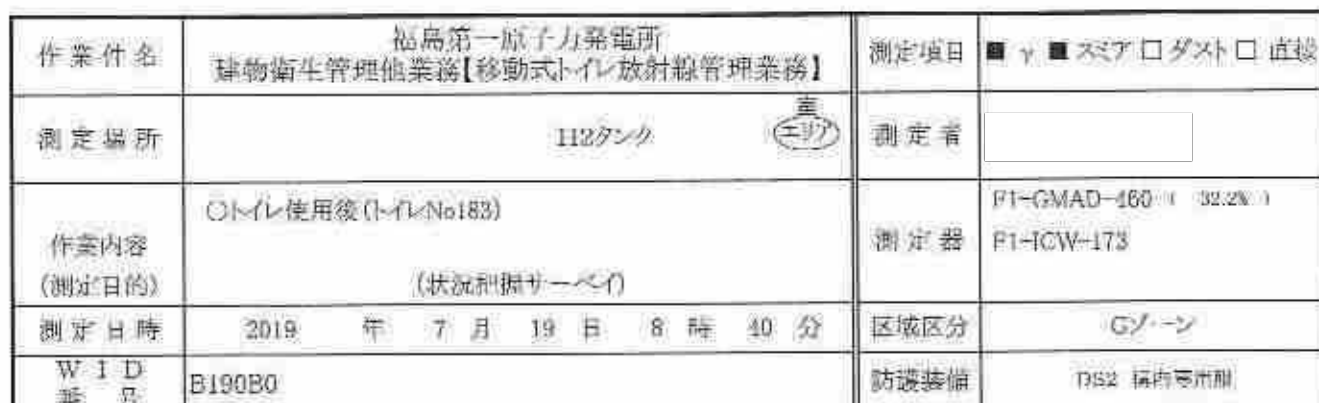 作業件名
福島第一原子力発電所
建物衛生管理他業務【移動式トイレ放射線管理業務】
測定項目
■ γ ■ スミア □ ダスト □ 直接
測定場所
H2タンク
エリア
測定者
作業内容
(測定目的)
○トイレ使用後(トイレNo183)
(状況把握サーベイ)
測定器
F1-GMAD-460 ( 32.2% )
F1-ICW-173
測定日時
2019 年 7 月 19 日 8 時 40 分
区域区分
Gゾーン
WID
番号
B190B0
防護装備
DS2 構内専用服